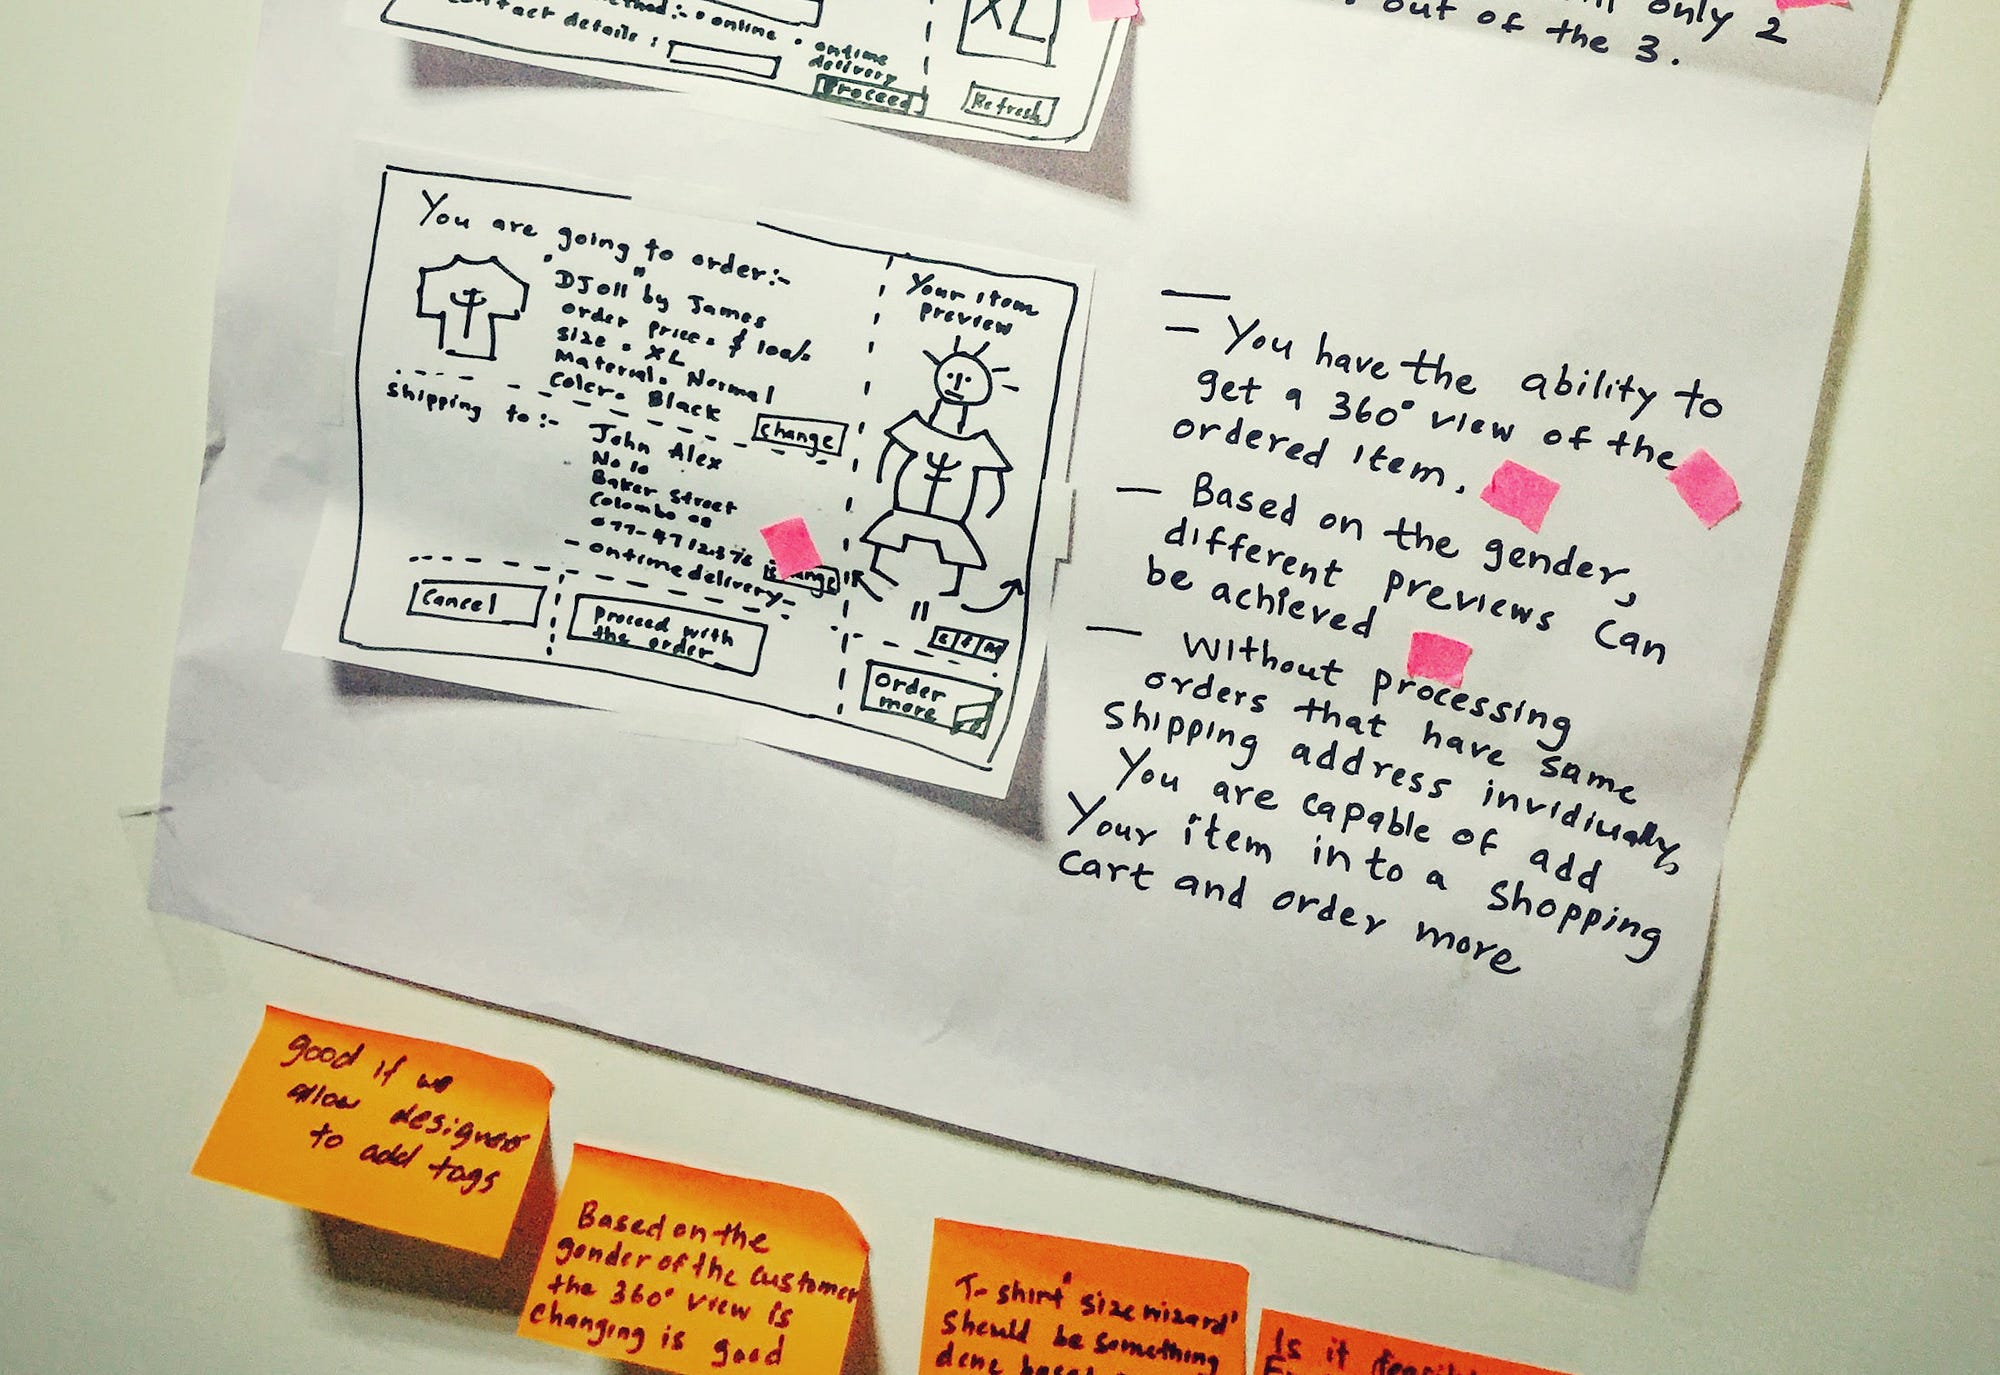 method:- • online • ontime
delivery
contact details :
Proceed
XL
Refresh
only 2
out of the 3.
You are going to order:-
"DJoll" by James
order price = $ 100/-
size = XL
Material = Normal
Color = Black
change
shipping to :-
John Alex
No 10
Baker street
Colombo 08
- ontime delivery -
Cancel
proceed with
the order
Your item
preview
order
more
- You have the ability to
get a 360° view of the
ordered item.
- Based on the gender,
different previews can
be achieved
- Without processing
orders that have same
shipping address invidiually,
You are capable of add
Your item in to a shopping
cart and order more
good if we
allow designer
to add tags
Based on the
gender of the customer
the 360° view is
changing is good
T-shirt 'size wizard'
should be something
done based
Is it